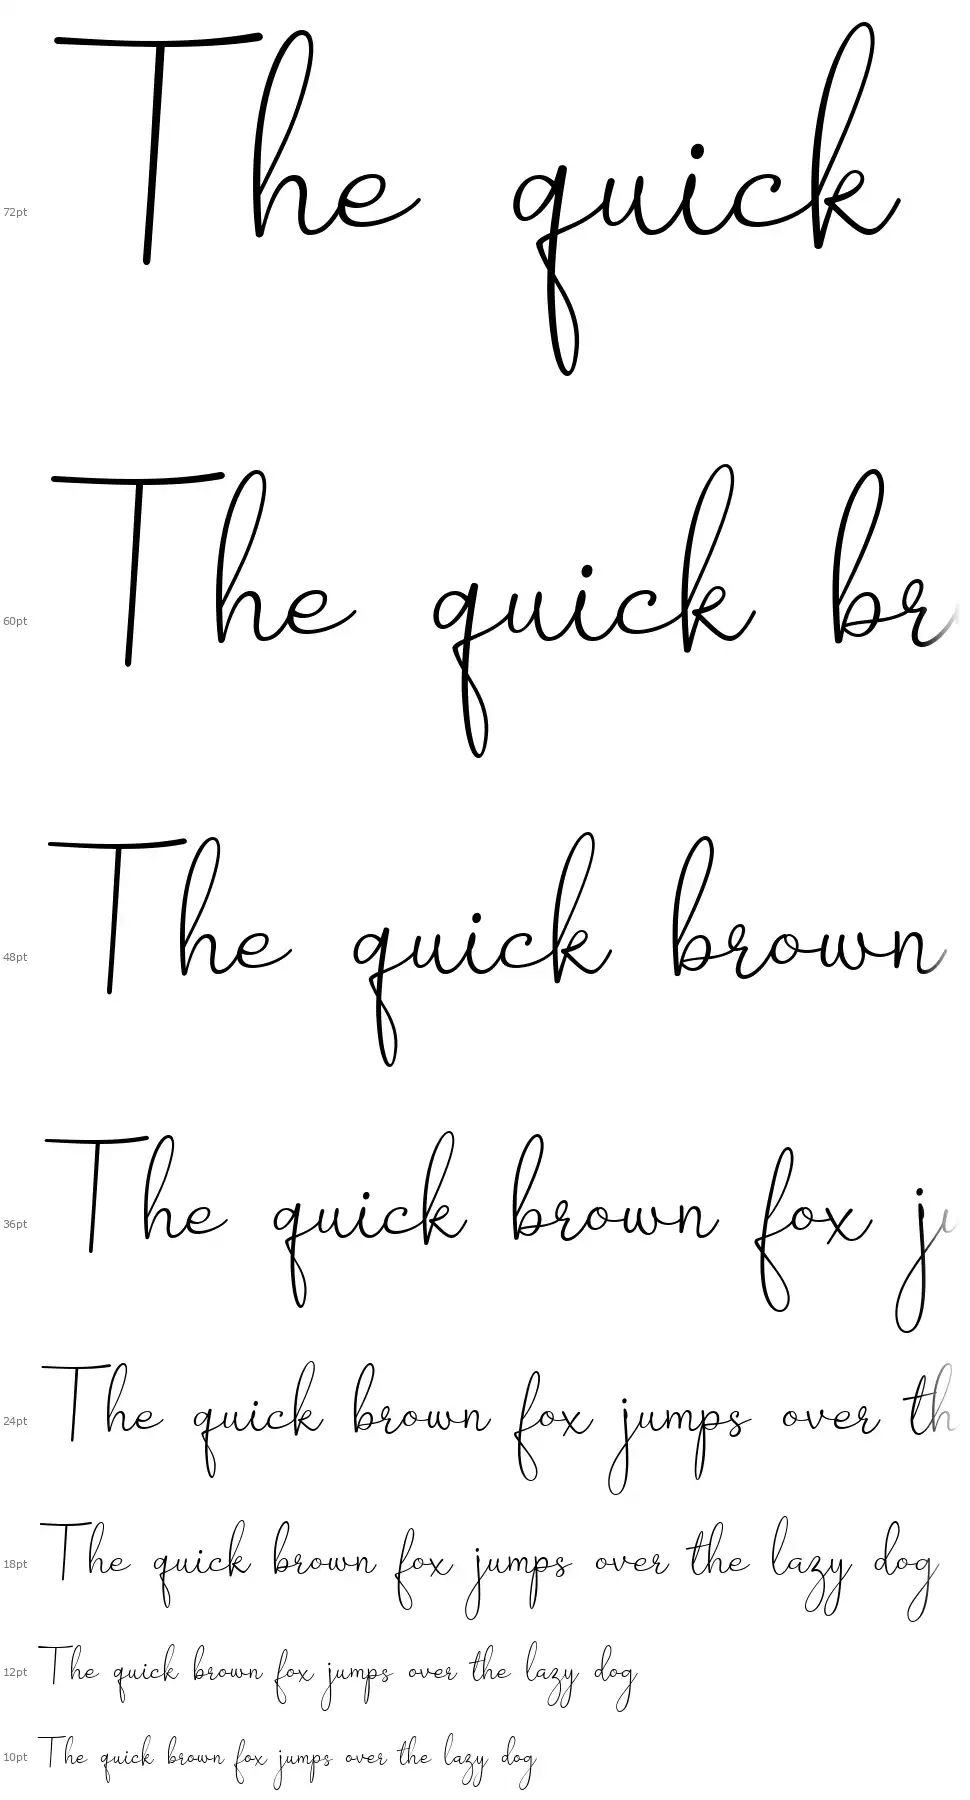 72pt The quick
60pt The quick br
48pt The quick brown
36pt The quick brown fox ju
24pt The quick brown fox jumps over th
18pt The quick brown fox jumps over the lazy dog
12pt The quick brown fox jumps over the lazy dog
10pt The quick brown fox jumps over the lazy dog